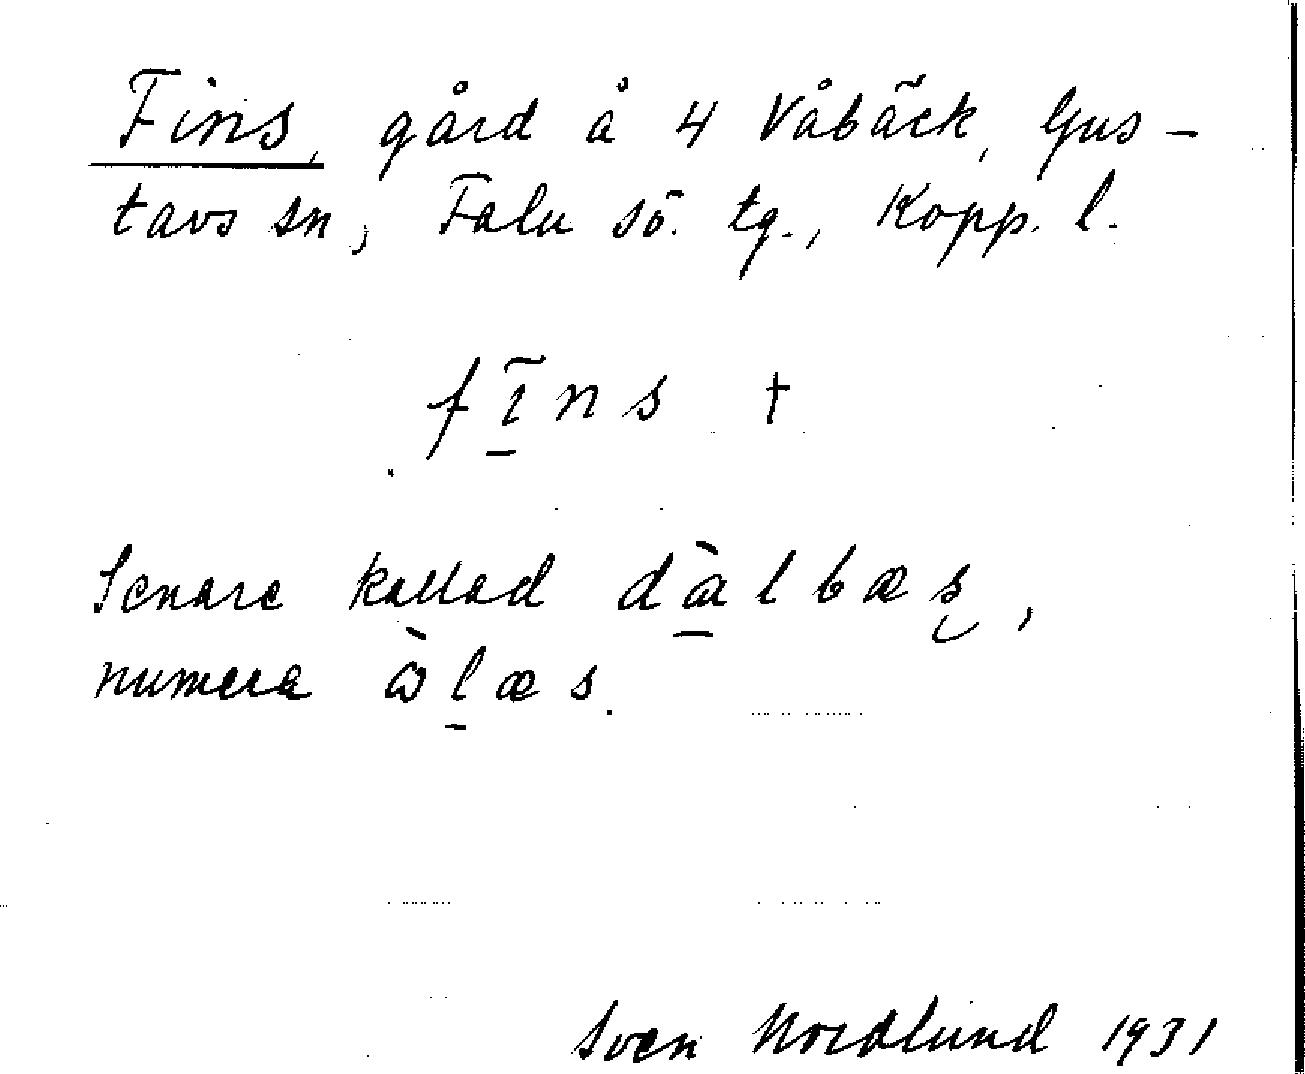 Fins, gård å 4 Våbäck, Gus-
tavs sn, Falu sö. tg., Kopp. l.
fīns †
Senare kallad dàlbæs,
numera ὼlæs.
Sven Nordlund 1931